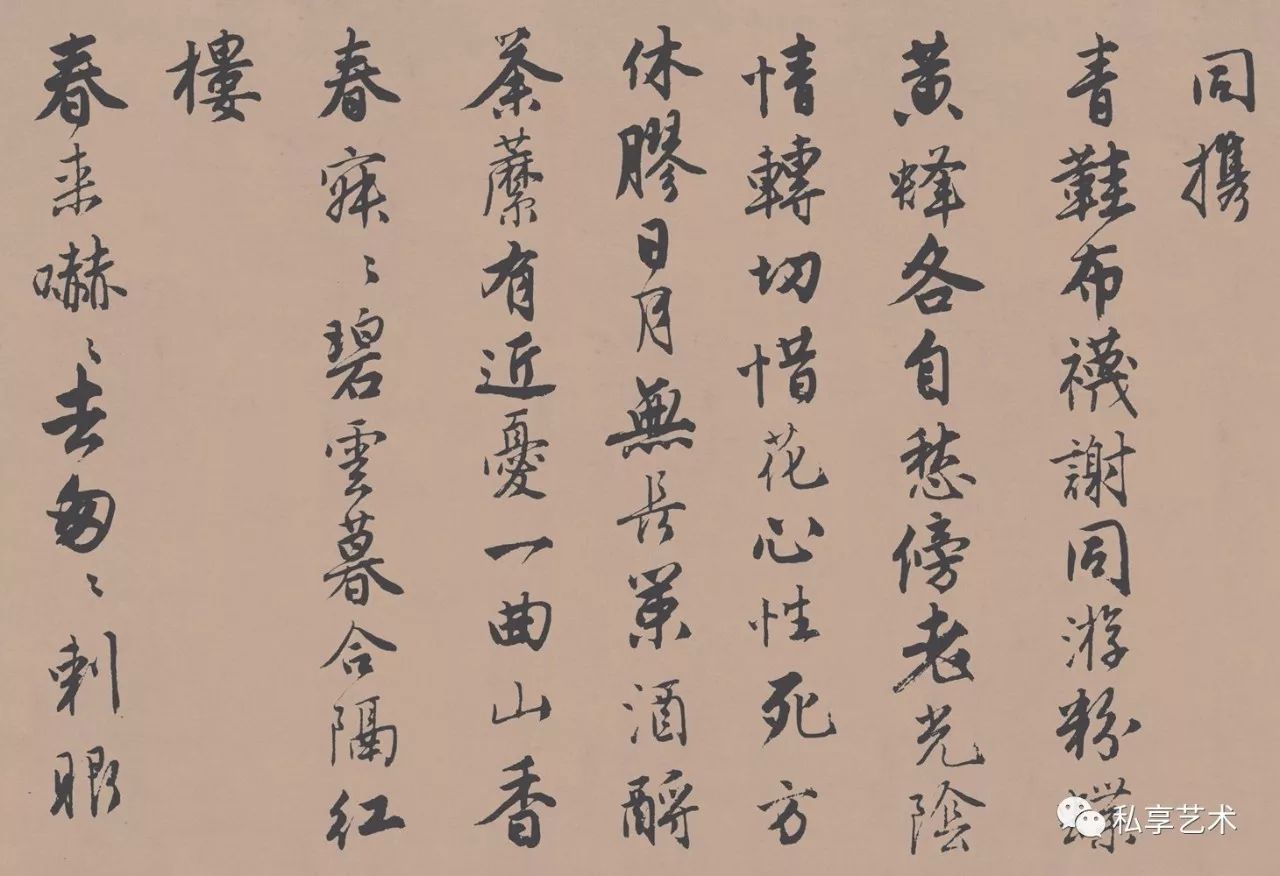 同攜
青鞋布襪謝同游粉蝶
黃蜂各自愁傍老光陰
情轉切惜花心性死方
休膠日月無長策酒酹
荼蘼有近憂一曲山香
春寂〻碧雲暮合隔紅
樓
春來嚇〻去匆〻刺眼
私享艺术